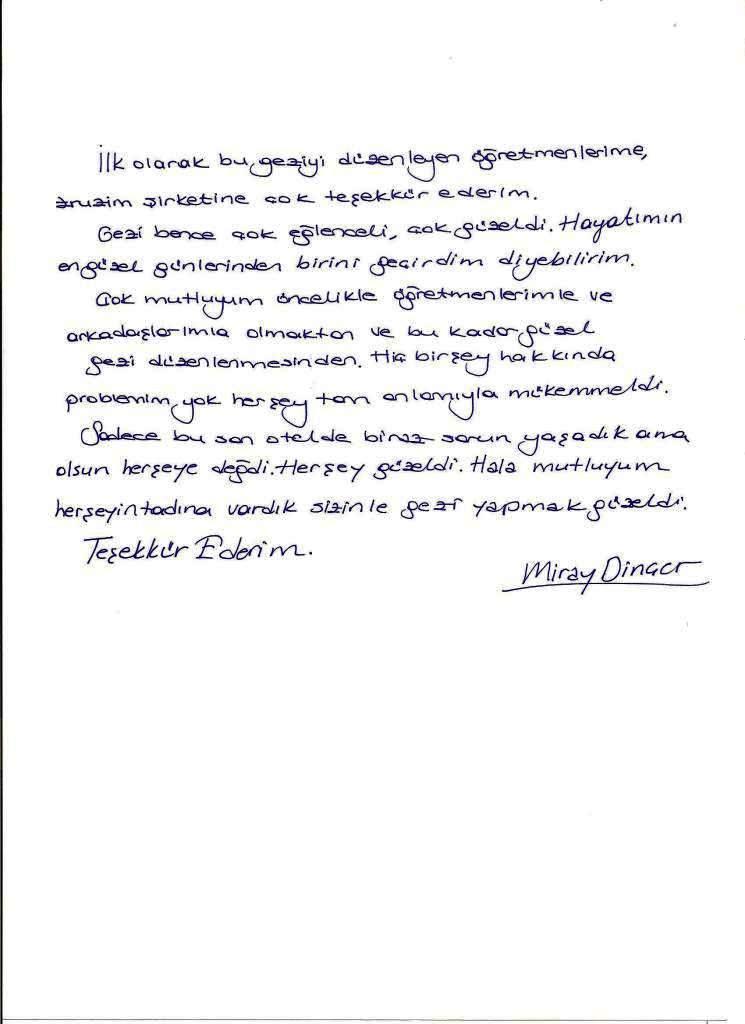 İlk olarak bu geziyi düzenleyen öğretmenlerime,
şirketine çok teşekkür ederim.
Gezi bence çok eğlenceli, çok güzeldi. Hayatımın
en güzel günlerinden birini geçirdim diyebilirim.
Çok mutluyum öncelikle öğretmenlerimle ve
arkadaşlarımla olmaktan ve bu kadar güzel
gezi düzenlenmesinden. Hiç birşey hakkında
problemim yok herşey tam anlamıyla mükemmeldi.
Sadece bu son otelde biraz sorun yaşadık ama
olsun herşeye değdi. Herşey güzeldi. Hala mutluyum
herşeyin tadına vardık sizinle gezi yapmak güzeldi.
Teşekkür Ederim.
Miray Dinçer